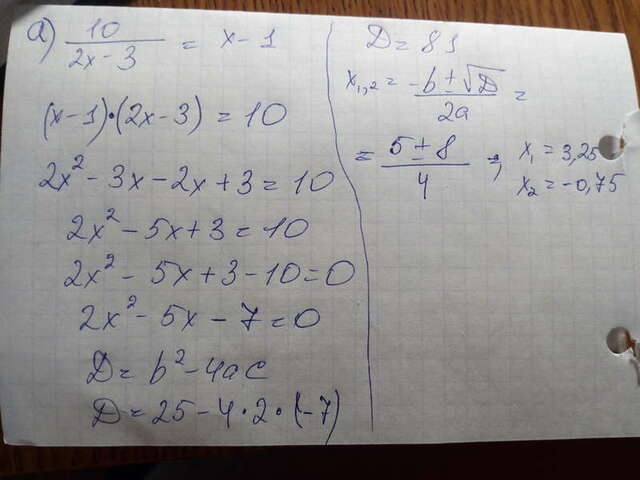 а) 10/(2x-3) = x-1
(x-1)·(2x-3) = 10
2x² - 3x - 2x + 3 = 10
2x² - 5x + 3 = 10
2x² - 5x + 3 - 10 = 0
2x² - 5x - 7 = 0
D = b² - 4ac
D = 25 - 4·2·(-7)
D = 81
x₁,₂ = (-b ± √D)/2a =
= (5 ± 8)/4 ; x₁ = 3,25
x₂ = -0,75